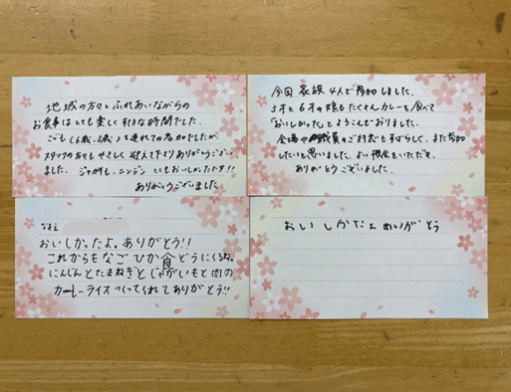 地域の方々とふれあいながらの
お食事はとても楽しく すてきな時間でした。
こども(6歳、4歳)も連れての参加でしたが、
スタッフの方々もやさしく 対応下さりありがとうござい
ました。ジャガイモ、ニンジン とてもおいしかったです!!
ありがとうございました
今回 家族 4人で 参加しました。
3才と6才の娘もたくさんカレーを食べて
「おいしかった」とよろこんでおりました。
会場や職員のご対応もすばらしく、また参加
したいと思いました。よい機会をいただき、
ありがとうございました。
おいしかったよ。ありがとう!!
これからもなごひか食どうにくるね。
にんじんとたまねぎとじゃがいもと肉の
カーレーライスつくってくれてありがとう!!
おいしかたよ ありがとう